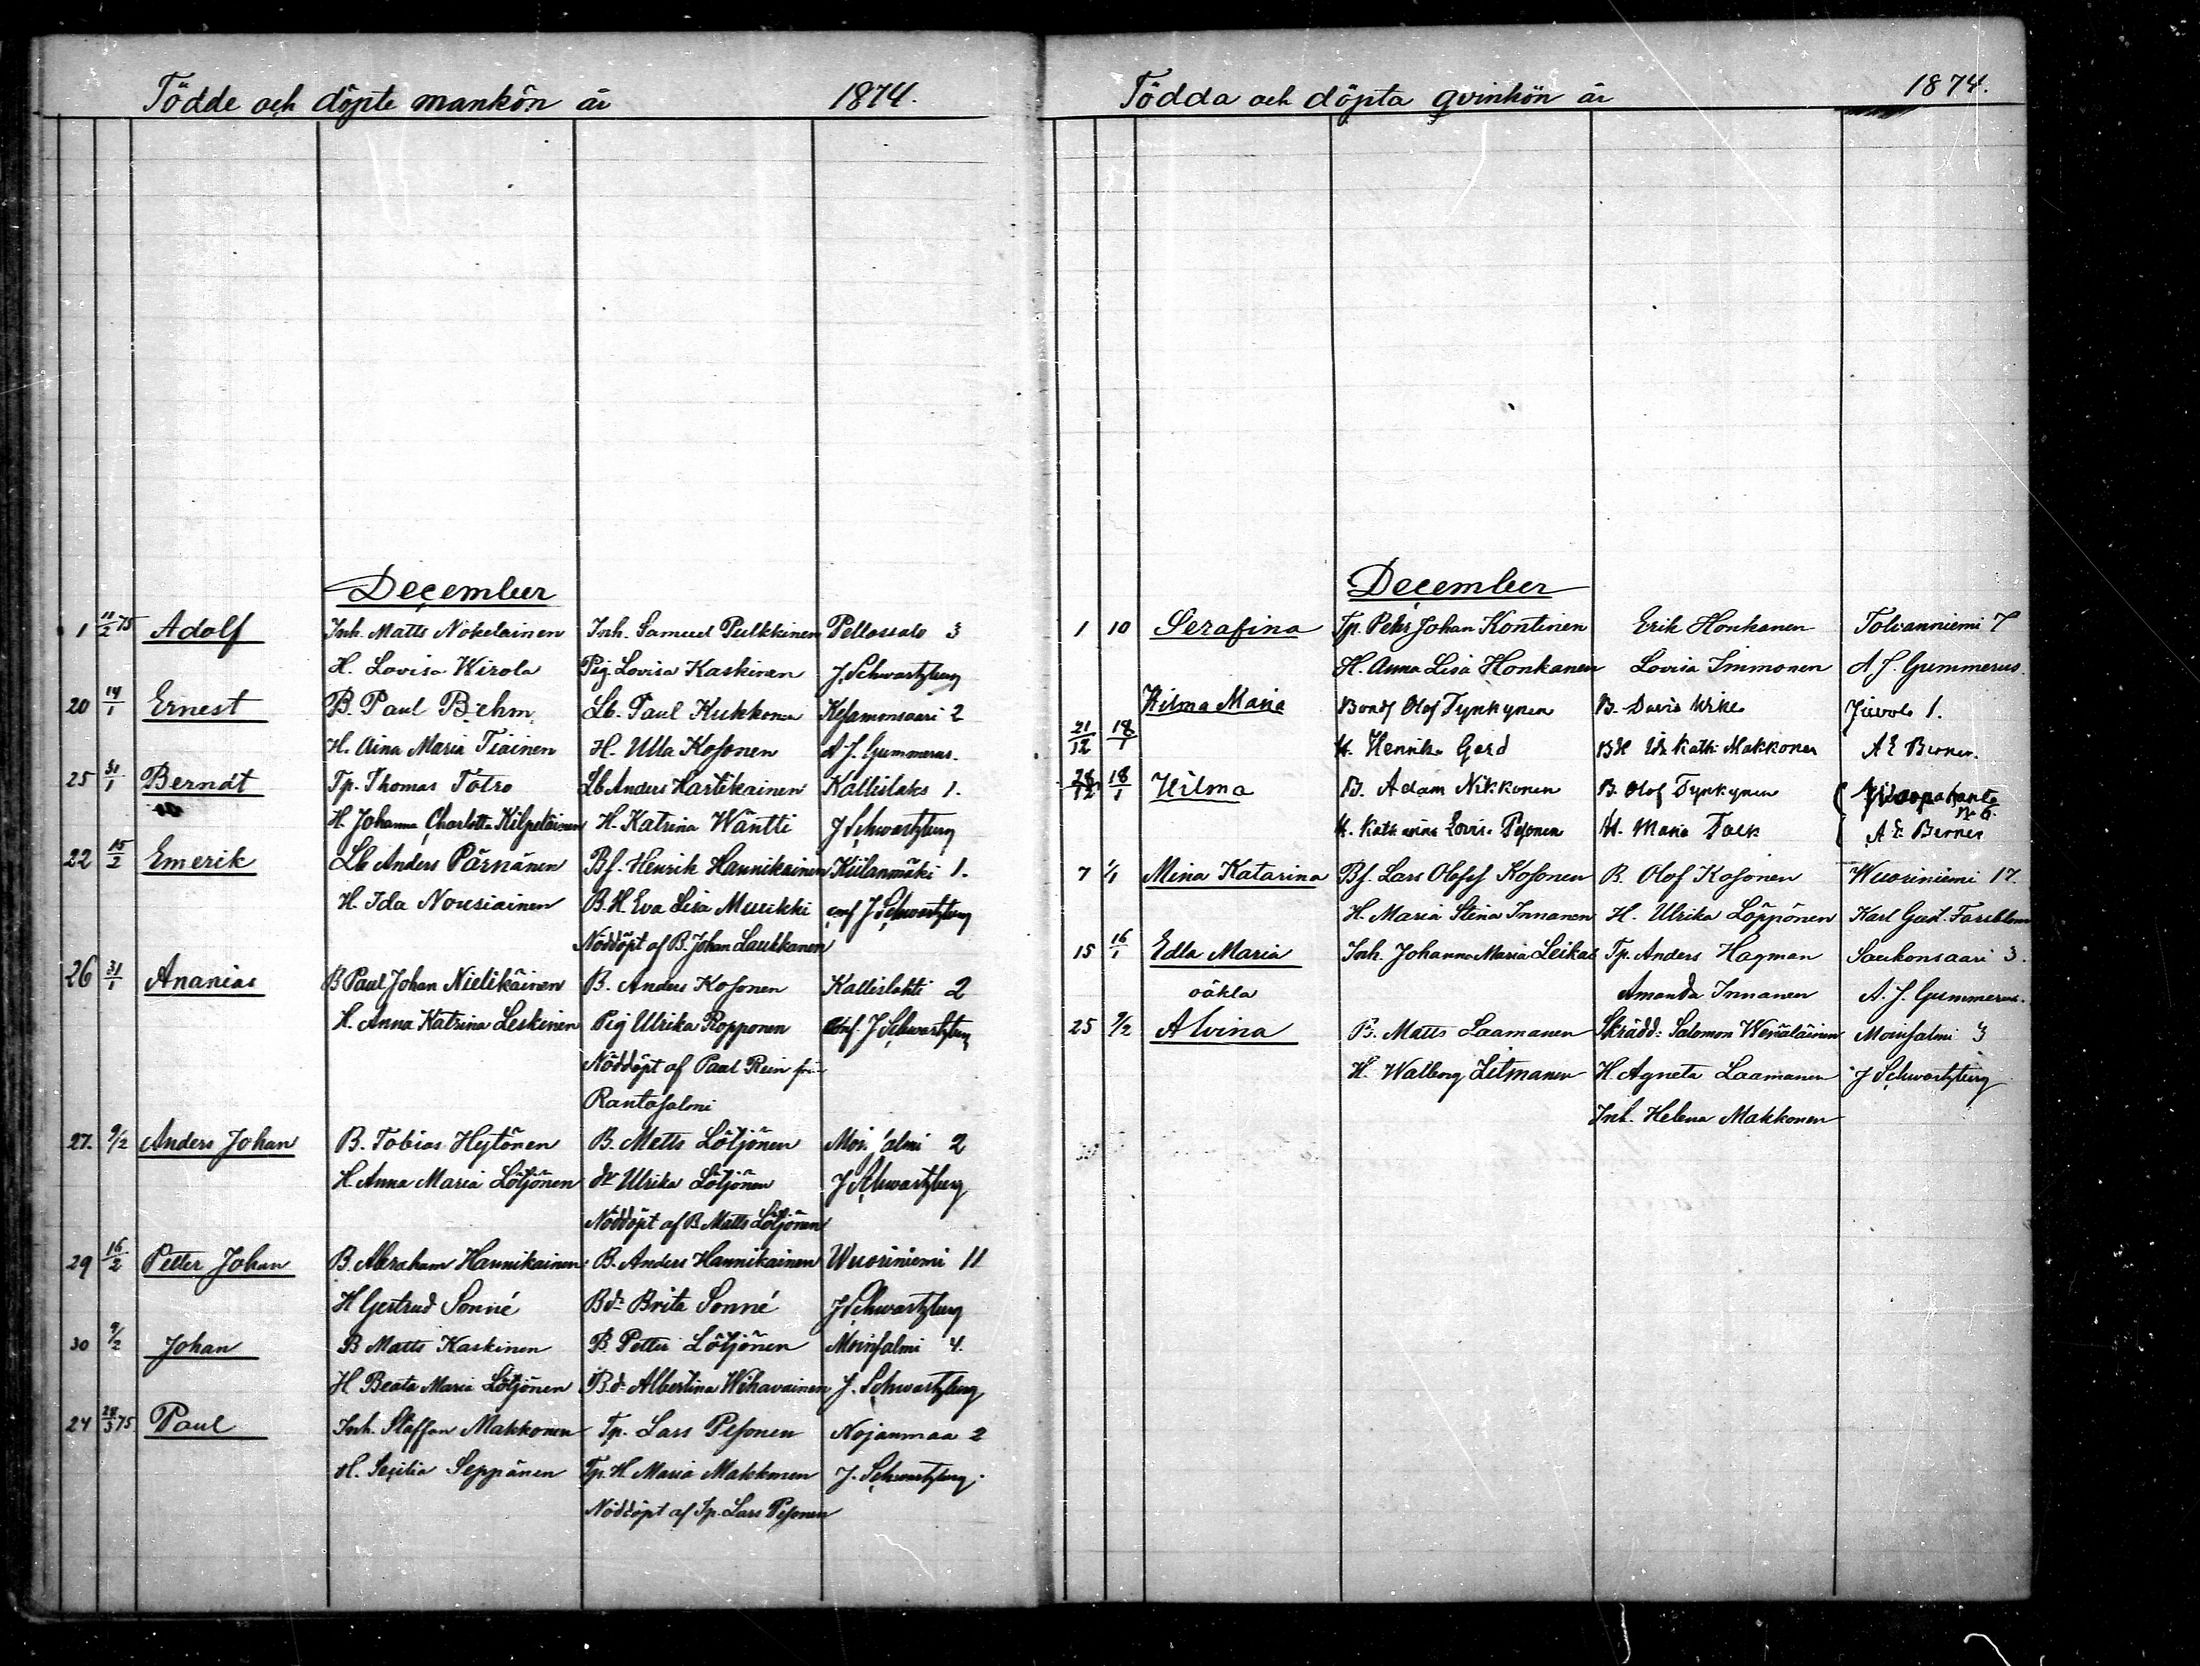 Födde och döpte mankön år 1874.
December
1 11/2 75 Adolf Inh. Matts Nokelainen Inh. Samuel Pulkkinen Pellossalo 3
H. Lovisa Wirola Pig. Lovisa Kaskinen J Schwartzberg
20 14/1 Ernest B. Paul Behm Lb. Paul Kukkonen Kesamonsaari 2
H. Aina Maria Tiainen H. Ulla Kosonen A F. Gummerus.
25 31/1 Berndt Tp. Thomas Totro Lb Anders Hartikainen Kallislaks 1.
H. Johanna Charlotta Kilpeläinen H. Katrina Wäntti J Schwartzberg
22 15/2 Emerik Lb Anders Pärnänen Bf. Henrik Hannikainen Kiilanmäki 1.
H. Ida Nousiainen B.H. Eva Lisa Muukki conf J Schwartzberg
Nöddöpt af B. Johan Laukkanen
26 31/1 Ananias B Paul Johan Nielikäinen B. Anders Kosonen Kallislahti 2
H. Anna Katrina Leskinen Pig Ulrika Ropponen conf. J Schwartzberg
Nöddöpt af Paul Rein fr.
Rantasalmi
27. 9/2 Anders Johan B. Tobias Heytönen B. Matts Löljönen Moi salmi 2
H Anna Maria Löljönen dr Ulrika Löljönen J Schwartzberg
Nöddöpt af B. Matts Löljönen
29 16/2 Petter Johan B. Abraham Hannikainen B. Anders Hannikainen Wuoriniemi 11
H Gertrud Sonné Bdr Brita Sonné J Schwartzberg
30 9/2 Johan B Matts Kaskinen B. Petter Löljönen Moinsalmi 4.
H Beata Maria Löljönen B.d. Albertina Wihavainen J. Schwartzberg
24 28/3 75 Paul Inh. Staffan Makkonen Tp. Lars Pesonen Nojanmaa 2
H. Secilia Seppänen Tp. H Maria Makkonen J. Schwartzberg.
Nöddöpt af Tp. Lars Pesonen
Födda och döpta qvinkön år 1874.
December
1 10 Serafina Tp. Pehr Johan Kontinen Erik Honkanen Tolvanniemi 7
H. Anna Lisa Honkanen Lovisa Immonen A F. Gummerus.
Hilma Maria Bond Olof Tynkynen B. David Juvola 1.
21/12 18/1 H. Henrika Gerd BH Kath. Makkonen A E Berner.
28/12 18/1 Hilma B. Adam Nikkonen B. Olof Tynkynen
H. Katharina Lovisa Pesonen H. Maria Falk A. E. Berner
7 1/1 Mina Katarina Bf. Lars Olofsf Kosonen B. Olof Kosonen Wuoriniemi 17.
H. Maria Stina Innanen H. Ulrika Löppönen Karl Gust. Farsblom
15 16/1 Edla Maria Inh. Johanna Maria Leikas Tp. Anders Hagman Saukonsaari 3.
oäkta Amanda Innanen A. F. Gummerus.
25 9/2 Alvina B. Matts Laamanen Skrädd. Salomon Wenäläinen Moinsalmi 3
H. Walborg Litmanen H. Agneta Laamanen J Schwartzberg
Inh. Helena Makkonen